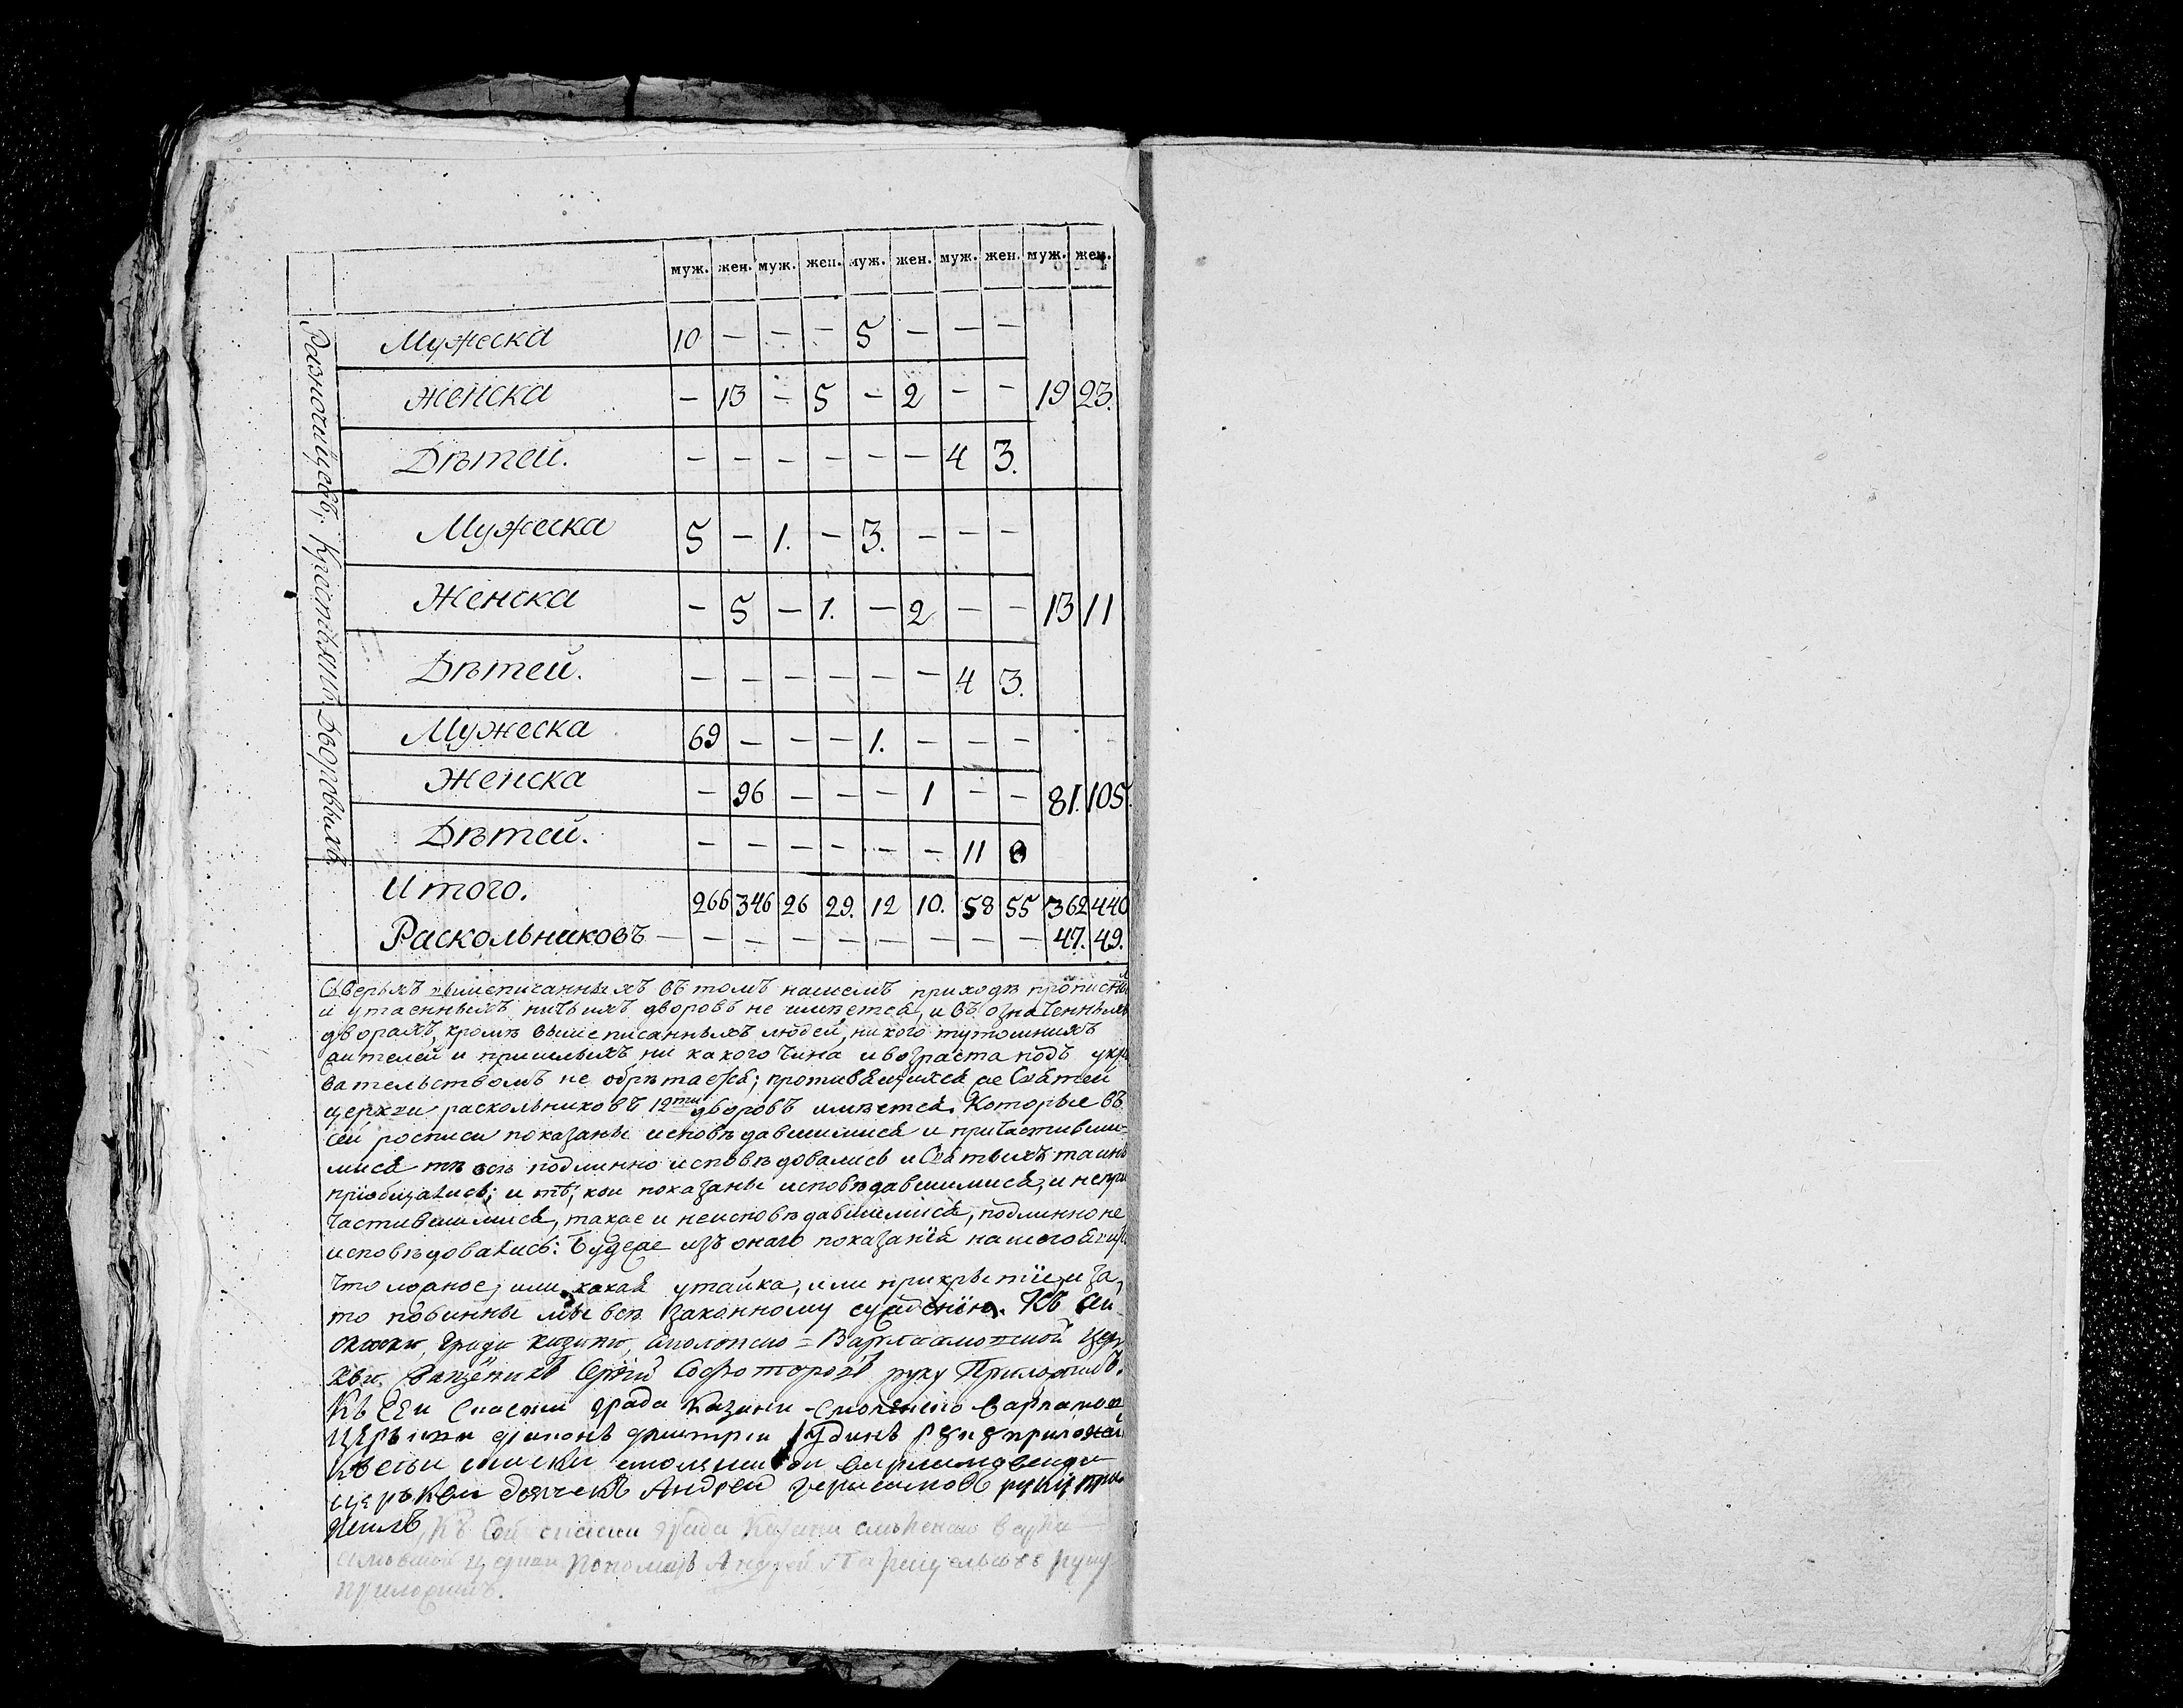 муж. жен. муж. жен. муж. жен. муж. жен. муж. жен.
Разночинцевъ,
Мужеска 10 — — — 5 — — —
Женска — 13 — 5 — 2 — — 19 23.
Дѣтей. — — — — — — 4 3.
Крестьянъ
Мужеска 5 — 1. — 3. — — —
Женска — 5 — 1. — 2 — — 13 11
Дѣтей. — — — — — — 4 3.
Дворовыхъ
Мужеска 69 — — — 1. — — —
Женска — 96 — — — 1 — — 81. 105.
Дѣтей. — — — — — — 11 8
Итого. 266 346 26 29. 12 10. 58 55 362 440
Раскольниковъ — — — — — — — — — 47. 49.
Сверьхъ вышеписанныхъ въ томъ нашемъ приходѣ прописныхъ
и утаенныхъ ничьихъ дворовъ не имѣется, и въ означенныхъ
дворахъ, кромѣ вышеписанныхъ людей, никого тутошнихъ
жителей и пришлыхъ ни какого чина и возраста подъ укры
вательствомъ не обрѣтается; противящихся же Святей
церкви раскольниковъ 12ти дворовъ имѣется. Которые въ
сей росписи показаны исповѣдавшимися и причастивши=
мися тѣ всѣ подлинно исповѣдовались и Святыхъ таинъ
приобщались; и тѣ, кои показаны исповѣдавшимися, и непри
частившимися, также и неисповѣдавшимися, подлинно не
исповѣдовались: Будеже изъ онаго показанїя нашего явится
что ложное, или какая утайка, или прикрытїе, и за
то повинны мы всѣ законному сужденїю. Къ сей
скаски града казани, смоленско = Варлаамовской цер
кви Священникъ Сергїй руку Приложилъ.
Къ сеи скаски града Казани Смоленско варламов
церькви дiаконъ дмитреи руку приложилъ
къ сеи скаски смоленской варламовской
церькви дьячекъ Андреи Герасимовъ руку прило
жилъ, Къ Сей скаски града Казани смоленско варла
амовской церкви пономарь Андрей руку
приложилъ.